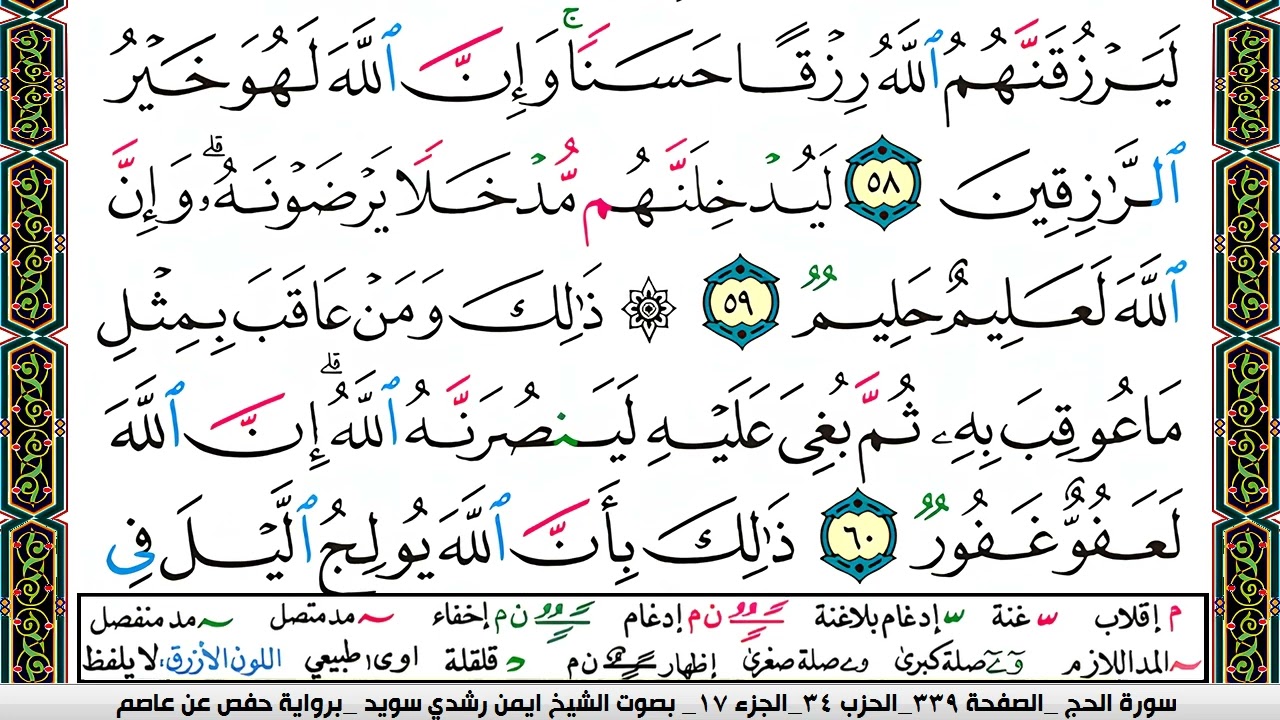 لَيَرْزُقَنَّهُمُ ٱللَّهُ رِزْقًا حَسَنًا ۚ وَإِنَّ ٱللَّهَ لَهُوَ خَيْرُ
ٱلرَّٰزِقِينَ ٥٨ لَيُدْخِلَنَّهُم مُّدْخَلًا يَرْضَوْنَهُۥ ۗ وَإِنَّ
ٱللَّهَ لَعَلِيمٌ حَلِيمٌ ٥٩ ۞ ذَٰلِكَ وَمَنْ عَاقَبَ بِمِثْلِ
مَا عُوقِبَ بِهِۦ ثُمَّ بُغِىَ عَلَيْهِ لَيَنصُرَنَّهُ ٱللَّهُ ۗ إِنَّ ٱللَّهَ
لَعَفُوٌّ غَفُورٌ ٦٠ ذَٰلِكَ بِأَنَّ ٱللَّهَ يُولِجُ ٱلَّيْلَ فِى
م إقلاب غنة إدغام بلاغنة ن م إدغام ن م إخفاء مد متصل مد منفصل
المد اللازم صلة كبرى و ے صلة صغرى إظهار ن م قلقلة اوى طبيعي اللون الأزرق، لا يلفظ
سورة الحج _الصفحة ٣٣٩_الحزب ٣٤_الجزء ١٧_ بصوت الشيخ ايمن رشدي سويد _برواية حفص عن عاصم